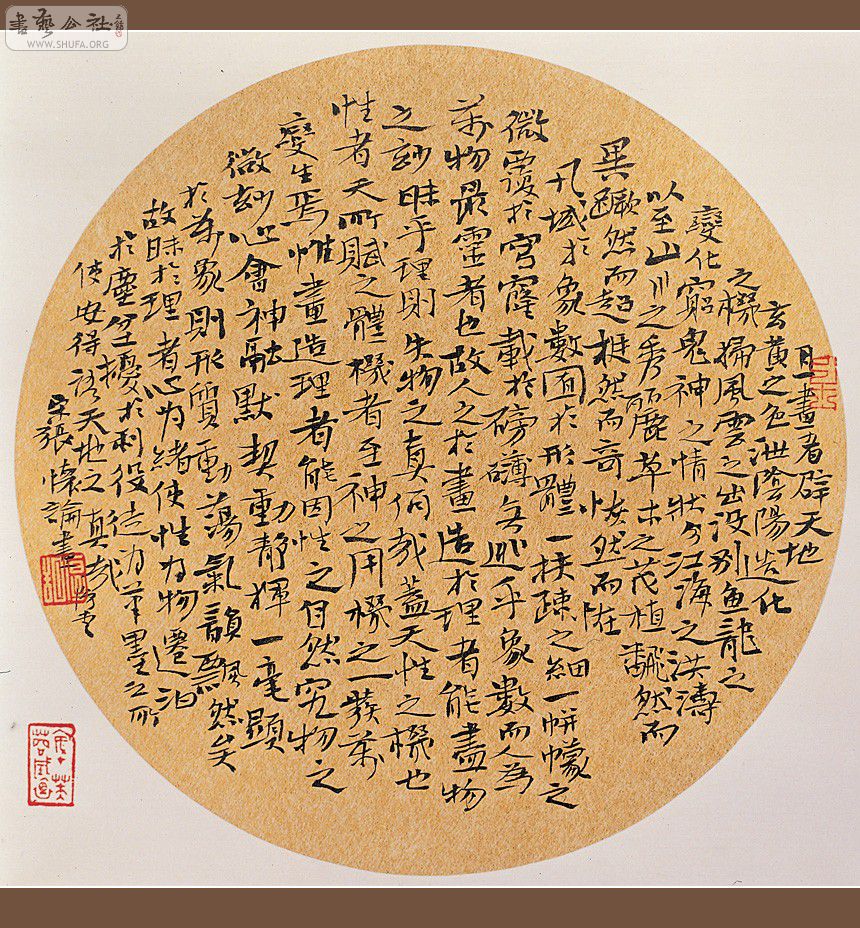 書藝公社
WWW.SHUFA.ORG
且畫者辟天地
玄黄之色泄陰陽造化
之機掃風雲之出没别魚龍之
變化窮鬼神之情状分江海之洪濤
以至山川之秀麗草木之茂植翻然而
異蹶然而超挺然而奇恢然而陡
凡域於象數囿於形體一扶疎之細一帡幪之
微覆於穹窿載於磅礴無逃乎象數而人為
萬物最靈者也故人之於畫造於理者能盡物
之妙昧乎理則失物之真何哉蓋天性之機也
性者天所賦之體機者至神之用機之一發萬
變生焉惟畫造理者能因性之自然究物之
微妙心會神融默契動静揮一毫顯
於萬象則形質動蕩氣韻飄然矣
故昧於理者心为緒使性为物遷汩
於塵坌擾於利役徒为筆墨之所
使安得語天地之真哉
宋張懷論畫